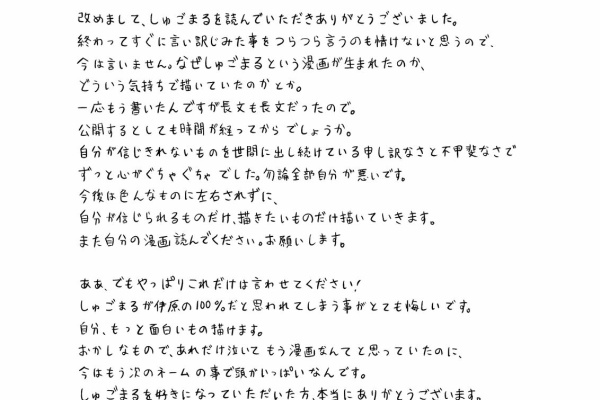 改めまして、しゅごまるを読んでいただきありがとうございました。
終わってすぐに言い訳じみた事をつらつら言うのも情けないと思うので、
今は言いません。なぜしゅごまるという漫画が生まれたのか、
どういう気持ちで描いていたのかとか。
一応もう書いたんですが長文も長文だったので。
公開するとしても時間が経ってからでしょうか。
自分が信じきれないものを世間に出し続けている申し訳なさと不甲斐なさで
ずっと心がぐちゃぐちゃでした。勿論全部自分が悪いです。
今後は色んなものに左右されずに、
自分が信じられるものだけ、描きたいものだけ描いていきます。
また自分の漫画読んでください。お願いします。
ああ、でもやっぱりこれだけは言わせてください!
しゅごまるが伊原の100%だと思われてしまう事がとても悔しいです。
自分、もっと面白いもの描けます。
おかしなもので、あれだけ泣いてもう漫画なんてと思っていたのに、
今はもう次のネームの事で頭がいっぱいなんです。
しゅごまるを好きになっていただいた方、本当にありがとうございます。